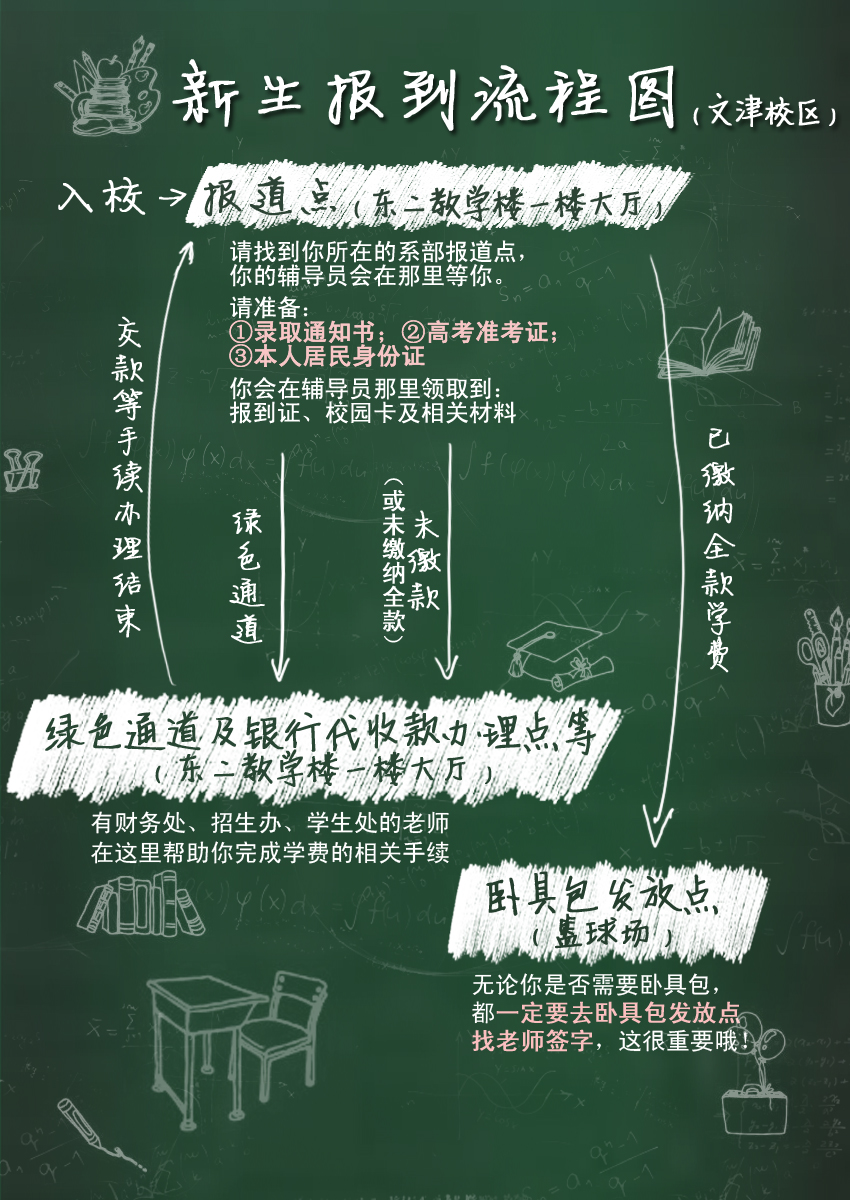 新生报到流程图（文津校区）
入校→报道点（东二教学楼一楼大厅）
请找到你所在的系部报道点，
你的辅导员会在那里等你。
请准备：
①录取通知书；②高考准考证；
③本人居民身份证
你会在辅导员那里领取到：
报到证、校园卡及相关材料
交款等手续办理结束
绿色通道
（或未缴纳全款）
未缴款
已缴纳全款学费
绿色通道及银行代收款办理点等
（东二教学楼一楼大厅）
有财务处、招生办、学生处的老师
在这里帮助你完成学费的相关手续
卧具包发放点
（篮球场）
无论你是否需要卧具包，
都一定要去卧具包发放点
找老师签字，这很重要哦！